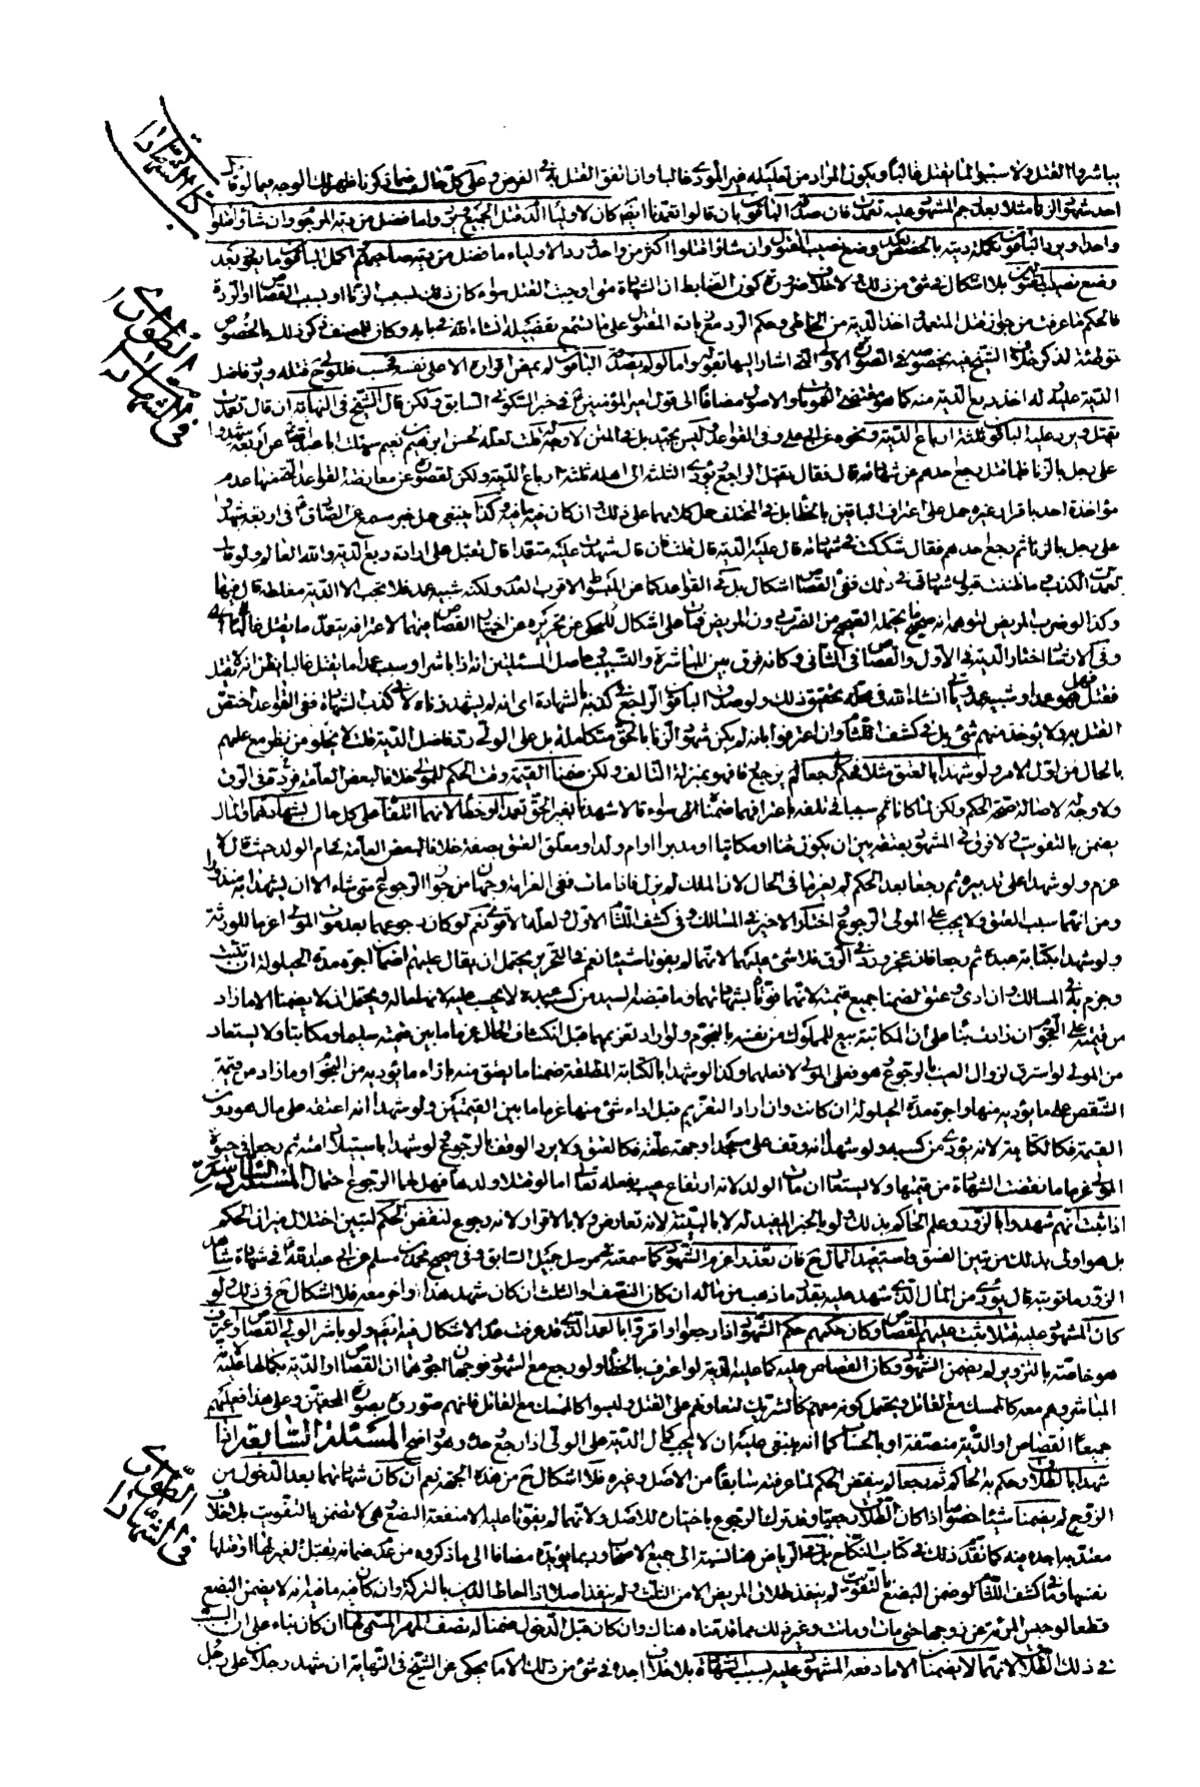 كتاب الشهادات
يباشروا القتل ولا سببوا لما يقتل غالبا ويكون المراد من تعليله غير المؤدي غالبا وان اتفق القتل به في الفرض وعلى كل حال فمما ذكرنا ظهر لك الوجه فيما لو قال
احد شهود الزنا مثلا بعد رجم المشهود عليه تعمدت فان صدقه الباقون بان قالوا تعمدنا ايضا كان لاولياء الدم قتل الجميع ويردوا ما فضل من دية المرجوم وان شاؤا قتلوا
واحدا ويرد الباقون تكملة ديته بالحصص بعد وضع نصيب المقتول وان شاؤا قتلوا اكثر من واحد ورد الاولياء ما فضل من دية صاحبهم واكمل الباقون ما يعوز بعد
وضع نصيب المقتولين بلا اشكال في شئ من ذلك ولا خلاف ضرورة كون الضابط ان الشهادة متى اوجبت القتل سواء كان ذلك بسبب الزنا او بسبب القصاص او الردة
فالحكم ما عرفت من جواز قتل المتعمد واخذ الدية من الخاطئ وحكم الرد مع زيادة المقتول على ما تسمع تفصيله انشاء الله في بابه وكان المصنف ذكر ذلك بالخصوص
توطئة لذكر خلاف الشيخ فيه بخصوصه في الصورة الاولى التي اشار اليها بقوله واما لو لم يصدقه الباقون لم يمض اقراره الا على نفسه فحسب فللولي ح قتله ويرد فاضل
الدية عليه وله اخذ ربع الدية منه كما هو مقتضى العمومات والاصول مضافا الى قول امير المؤمنين ع في خبر السكوني السابق ولكن قال الشيخ في النهاية ان قال تعمدت
يقتل ويرد عليه الباقون ثلثة ارباع الدية ونحوه عن ابي علي وفي القواعد وليس بجيد بل في المتن لا وجه له قلت لعله لحسن ابراهيم بن نعيم سئلت ابا عبد الله ع عن اربعة شهدوا
على رجل بالزنا فلما قتل رجع احدهم عن شهادته قال فقال يقتل الراجع ويؤدي الثلثة الى اهله ثلثة ارباع الدية ولكن لقصوره عن معارضة القواعد التي منها عدم
مؤاخذة احد باقرار غيره حمل على اعتراف الباقين بالخطأ بل في المختلف حمل كلامهما على ذلك وان كان فيه ما فيه وكذا ينبغي حمل خبر مسمع عن الصادق ع في اربعة شهدوا
على رجل بالزنا ثم رجع احدهم فقال شككت في شهادتي قال عليه الدية قال قلت فان قال شهدت عليه متعمدا قال يقتل على ارادة ربع الدية والله العالم ولو قال
تعمدت الكذب وما ظننت قبول شهادتي في ذلك ففي القصاص اشكال بل في القواعد كما عن المبسوط الاقرب العدم ولكنه شبيه عمد فلا تجب الا الدية مغلظة قال فيها
وكذا لو ضرب المريض لتوهمه انه صحيح ما يحتمله الصحيح من الضرب دون المريض فمات على اشكال للمحكي عن تحريره عن اختيار القصاص فيهما لاعترافه بتعمد ما يقتل غالبا
وفي الارشاد اختار الدية في الاول والقصاص في الثاني وكانه فرق بين المباشرة والتسبيب وحاصل المسئلتين انه اذا باشر او سبب عمدا ما يقتل غالبا بظن انه لا يقتل
فقتل فهل هو عمد او شبيه عمد ويأتي انشاء الله في محله تحقيق ذلك ولو صدق الباقون الراجع في كذبه بالشهادة اي انه لم يشهد زناه لا في كذب الشهادة ففي القواعد اختص
القتل به ولا يؤخذ منهم شئ بل في كشف اللثام وان اعترفوا بانه لم يكن شهود الزنا بالحق متكاملة بل على الولي رد فاضل الدية قلت لا يخلو من نظر مع علمهم
بالحال من اول الامر ولو شهدا بالعتق مثلا فحكم ثم رجعا لم يرجع فانهو بمنزلة التالف ولكن ضمنا القيمة وقت الحكم للمولى خلافا لبعض العامة فرده في الرق
ولا وجه له لاصالة صحة الحكم ولكن لما كانا هم سببا في تلفه باعترافهما ضمنا الى سواء قالا شهدنا بغير الحق تعمدا او خطأ لانهما اتلفا على كل حال بشهادتهما والمال
يضمن بالتفويت ولا فرق في المشهود بعتقه بين ان يكون قنا او مكاتبا او مدبرا او ام ولد او معلق العتق بصفة خلافا لبعض العامة في ام الولد حيث قال لا
غرم ولو شهدا على تدبيره ثم رجعا بعد الحكم لم يغرما في الحال لان الملك لم يزل فاذا مات ففي الغرامة وجهان من جواز الرجوع متى شاء الا ان يشهدا به منذورا
ومن انهما سبب العتق ولا يجب على المولى الرجوع اختار الاخير في المسالك وفي كشف اللثام الاول ولعله الاقوى نعم لو كان رجوعهما بعد موت المولى اغرما للورثة
ولو شهدا بكتابة عبده ثم رجعا فان عجز ورد في الرق فلا شئ عليهما لانهما لم يفوتا شيئا نعم في التحرير يحتمل ان يقال عليهم ضمان اجرة مدة الحيلولة ان ثبتت
وجزم به في المسالك وان ادى وعتق ضمنا جميع قيمته لانهما فوتاه بشهادتهما وما قبضه السيد من كسب عبده لا يحسب عليه لانه لماله ويحتمل ان لا يضمنا الا ما زاد
من قيمته على النجوم ان زادت بناء على ان المكاتبة بيع للمملوك من نفسه بالنجوم ولو اراد تغريمهما قبل انكشاف الحال غرما ما بين قيمته سليما ومكاتبا ولا يستعاد
من المولى لو استرق لزوال العيب بالرجوع هو فعل المولى لا فعلهما وكذا لو شهدا بالكتابة المطلقة ضمنا ما يعتق منه بازاء ما يؤديه من النجوم او ما زاد من قيمة
الشقص على ما يؤديه منها واجرة مدة الحيلولة ان كانت وان اراد التغريم قبل اداء شئ منها غرما ما بين القيمتين ولو شهدا انه اعتقه على مال هو دون
القيمة فكالكتابة لانه يؤدي من كسبه ولو شهدا انه وقف على مسجد او جهة عامة فكالعتق ولا يرد الوقف بالرجوع لو شهدا باستيلاد امته ثم رجعا في حيوة
المولى غرما ما نقصت الشهادة من قيمتها ولا يستعاد ان مات الولد لانه ارتفاع عيب بفعله تعالى اما لو قتلا ولدها فهل لهما الرجوع احتمال المسئلة السادسة
اذا ثبت انهم شهدوا بالزور وعلم الحاكم بذلك ولو بالخبر المفيد له لا بالبينة لانه تعارض ولا بالاقرار لانه رجوع لنقض الحكم لتبين اختلال ميزان الحكم
بل هو اولى بذلك من تبين الفسق واستعيد المال ح فان تعذر اغرم الشهود كما سمعته في مرسل جميل السابق وفي صحيح محمد بن مسلم عن ابي عبد الله ع في شهادة شاهد
الزور ما توبته قال يؤدي من المال الذي شهد عليه بقدر ما ذهب من ماله ان كان النصف او الثلث ان كان شهد هذا واخر معه فلا اشكال ح في ذلك ولو
كان المشهود عليه قتلا ثبت عليهم القصاص وكان حكمهم حكم الشهود اذا رجعوا واقروا بالعمد الذي قد عرفت عدم الاشكال فيه ايضا ولو باشر الولي القصاص واعترف
هو خاصة بالتزوير لم يضمن الشهود وكان القصاص عليه كما عليه الدية لو اعترف بالخطأ ولو رجع مع الشهود فوجهان اجودهما ان القصاص او الدية بكمالها عليه
المباشر وهم معه كالممسك مع القاتل ويحتمل كونه معهم كالشريك لتعاونهم على القتل وليسوا كالممسك مع القاتل فانهم صوروه بصورة المحقين وعلى هذا فعليهم
جميعا القصاص او الدية منصفة او بالحساب كما انه ينبغي عليه ان لا يجب كمال الدية على الولي اذا رجع وحده وهو واضح المسئلة السابعة اذا
شهدا بالطلاق وحكم به الحاكم ثم رجعا لم ينتقض الحكم لما عرفته سابقا من الاصل وغيره فلا اشكال ح من هذه الجهة نعم ان كان شهادتهما بعد الدخول من
الزوج لم يضمنا شيئا خصوصا اذا كان الطلاق رجعيا وقد ترك الرجوع باختياره للاصل ولانهما لم يفوتا عليه الا منفعة البضع وهي لا تضمن بالتفويت بلا خلاف
معتد به اجده فيه كما تقدم ذلك في كتاب النكاح بل في الرياض هنا نسبته الى جميع الاصحاب وربما يؤيده مضافا الى ما ذكروه من عدم ضمانه بقتل لغيرها او قتلها
نفسها وفي كشف اللثام لو ضمن البضع بالتفويت لم ينفذ طلاق المريض الا من الثلث ولم ينفذ اصلا اذا احاط الدين بالتركة وان كان فيه ما فيه وانه لا يضمن البضع
قطعا لو حبس المرئة عن زوجها حتى مات او ماتت وغير ذلك مما قدمناه هناك وان كان قبل الدخول ضمنا له نصف المهر المسمى لها ان كان بناء على ان السبب
في ذلك الطلاق لانهما لا يضمنان الا ما دفعه المشهود عليه بسبب الشهادة بلا خلاف اجده في شئ من ذلك الا ما يحكى عن الشيخ في النهاية ان شهد رجلان على رجل
في الطواري
في الشهادات
في الطواري
في الشهادات